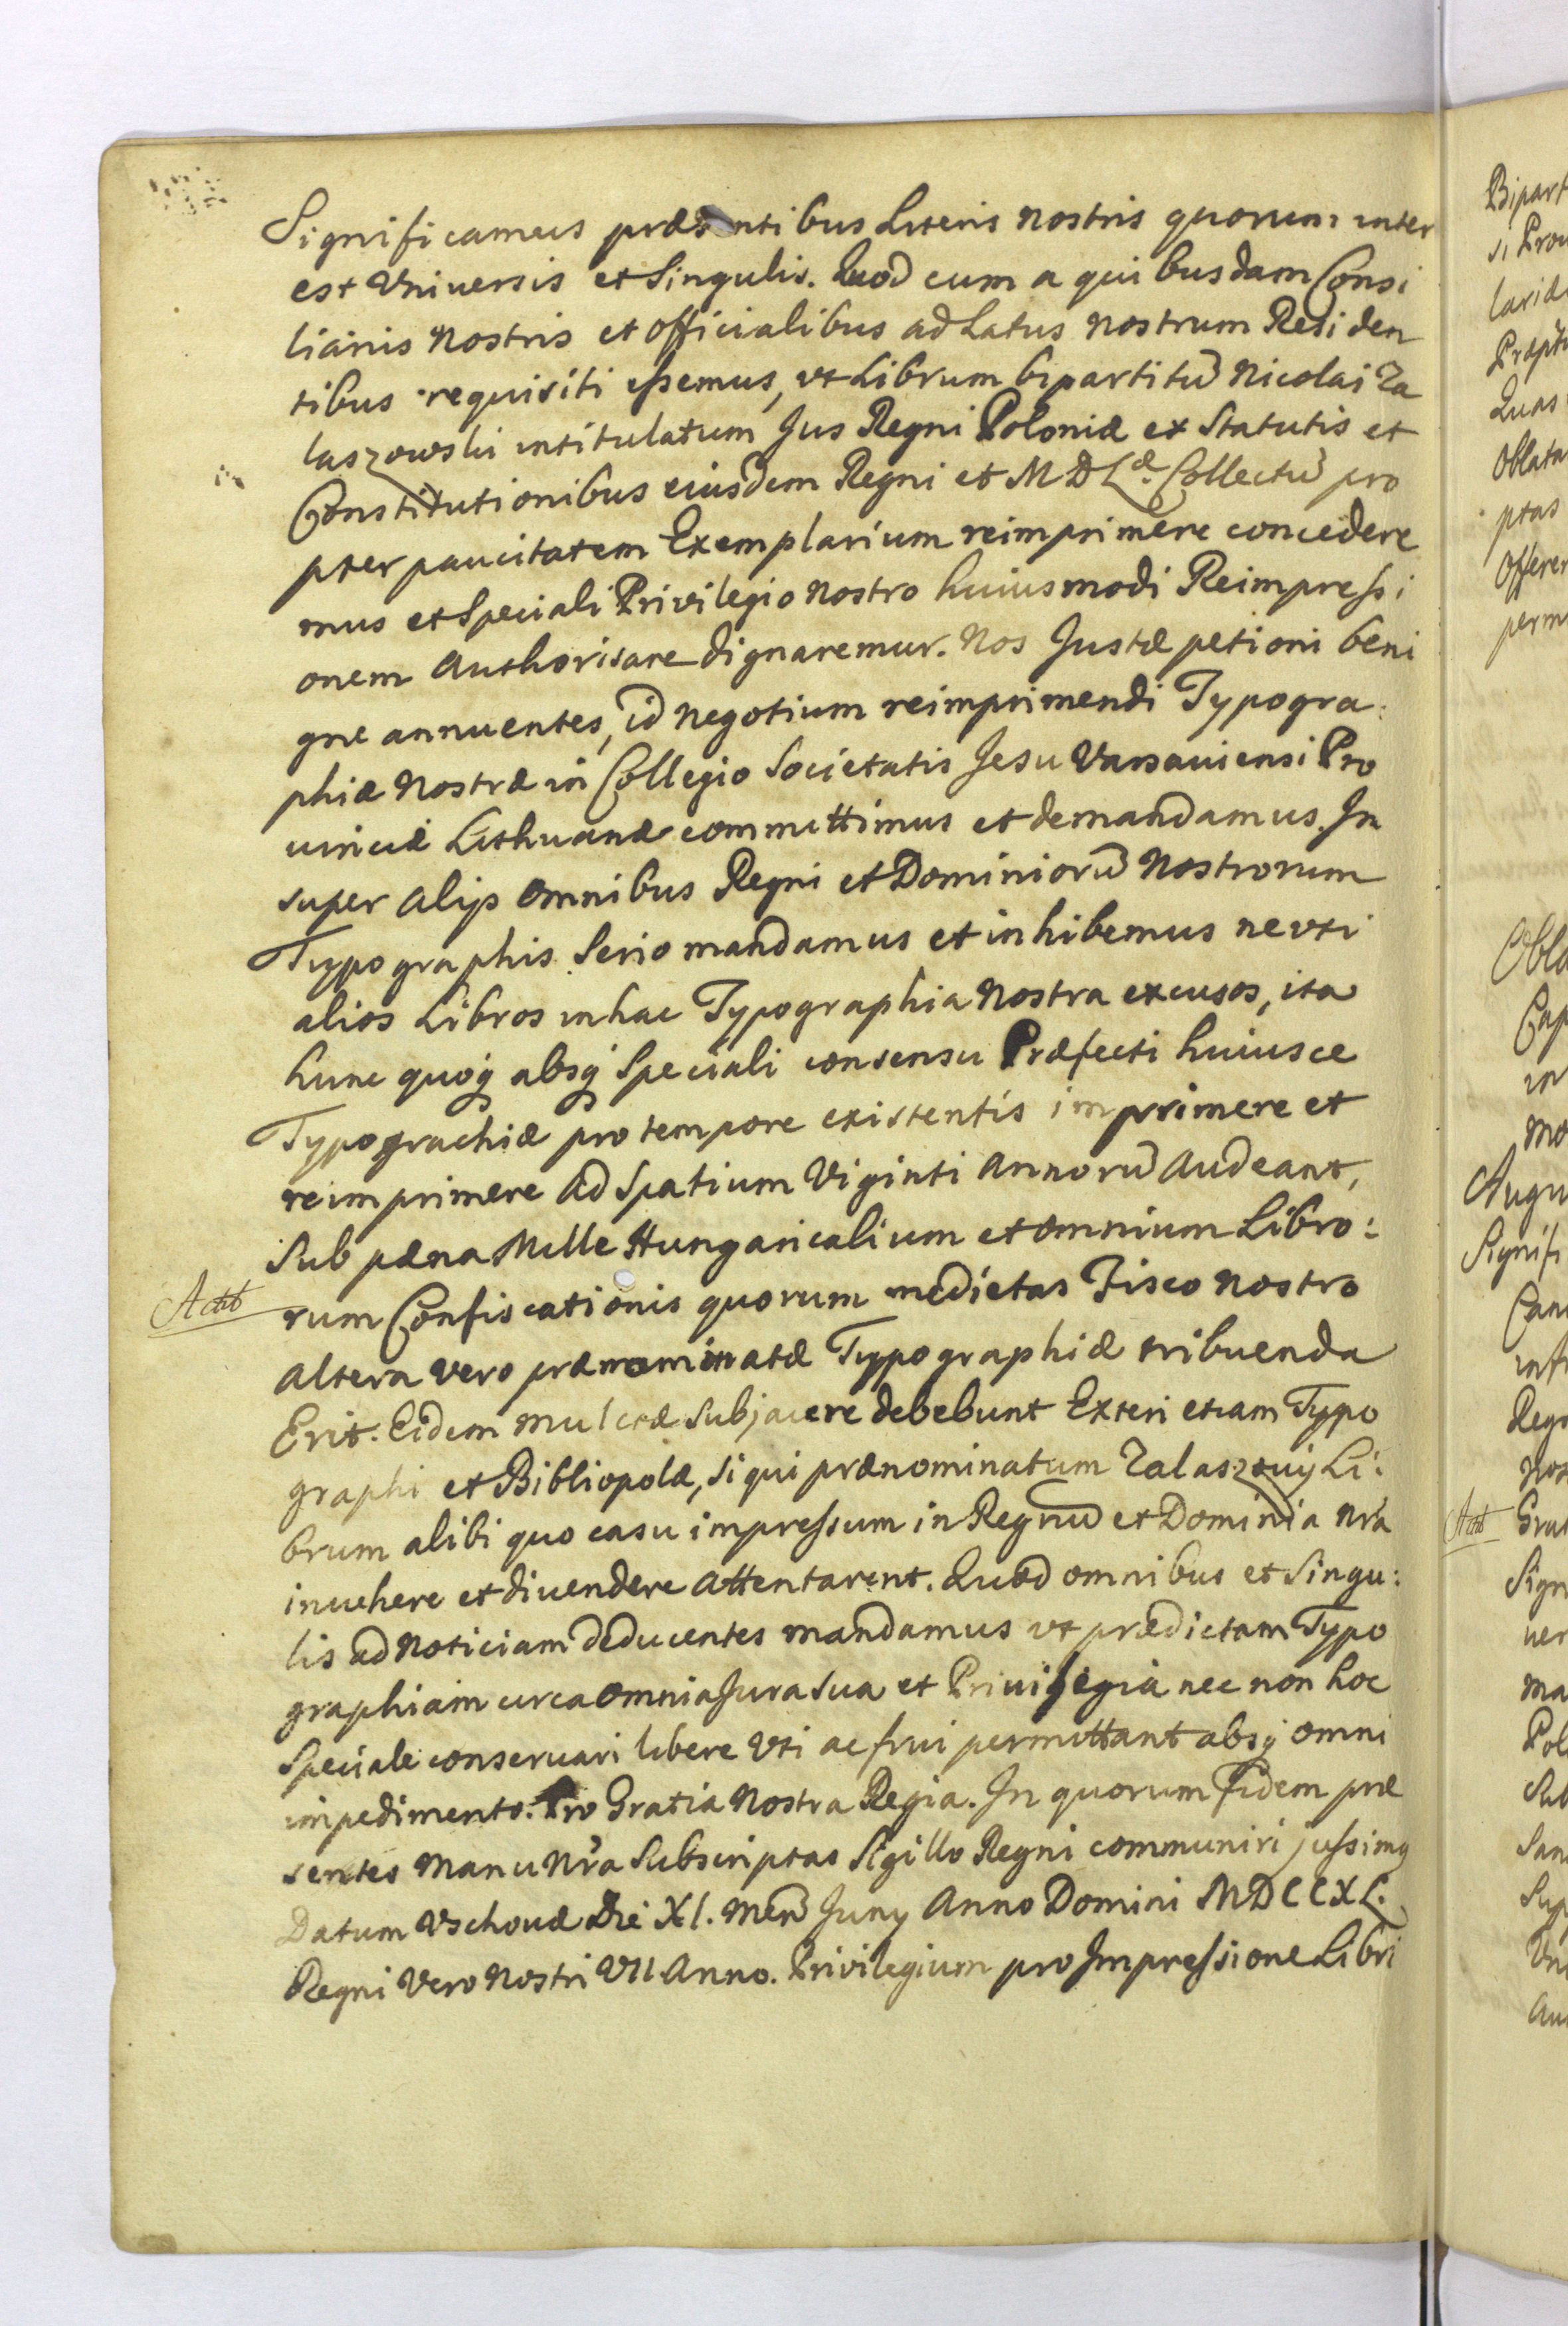 Significamus præsentibus Literis nostris quorum inter
est Vniuersis et Singulis. Quod cum a quibusdam Consi
liariis nostris et Officialibus ad Latus nostrum Residen
tibus requisiti essemus, vt Librum bipartitū Nicolai Za
laszowski intitulatum Jus Regni Poloniæ ex Statutis et
Constitutionibus eiusdem Regni et M D Læ Collectū pro
pter paucitatem Exemplarium reimprimere concedere
mus et Speciali Privilegio nostro huiusmodi Reimpressi
onem Authorisare dignaremur. Nos Justæ petioni beni
gne annuentes, id negotium reimprimendi Typogra:
phiæ nostræ in Collegio Societatis Jesu Varsauiensi Pro
uinciæ Lithuanæ committimus et demandamus. In
super alijs omnibus Regni et Dominiorū Nostrorum
Typographis Serio mandamus et inhibemus ne vti
alios Libros in hac Typographia nostra excusos, ita
hunc quoq absq Speciali consensu Præfecti huiusce
Typograchiæ pro tempore existentis imprimere et
reimprimere ad Spatium Viginti Annorū Audeant,
Sub pæna Mille Hungaricalium et omnium Libro:
rum Confiscationis quorum medietas Fisco nostro
altera vero prænominatæ Typographiæ tribuenda
Erit. Eidem mulctæ subjacere debebunt Exteri etiam Typo
graphi et Bibliopolæ, si qui prænominatum Zalaszouij Li:
brum alibi quo casu impressum in Regnū et Dominia nra
inuehere et diuendere attentarent. Quod omnibus et Singu:
lis ad noticiam deducentes mandamus vt prædictam Typo
graphiam circa omnia Jura sua et Priuilegia nec non hoc
Speciale conseruari libere Vti ac frui permittant absq omni
impedimento. Pro Gratia Nostra Regia. In quorum fidem præ
sentes manu Nra Subscriptas Sigillo Regni communiri jussimq
Datum Vschouæ Die XI. Men Juny Anno Domini MDCCXL.
Regni Vero Nostri VII Anno. Privilegium pro Impressione Libri
Bipart
si
Larid
Quas
Oblata
ptas
Offerer
perm
Cap
in
mo
Augu
Signifi
Can
Regn
nos
Sign
ver
ma
Pol
Sub
San